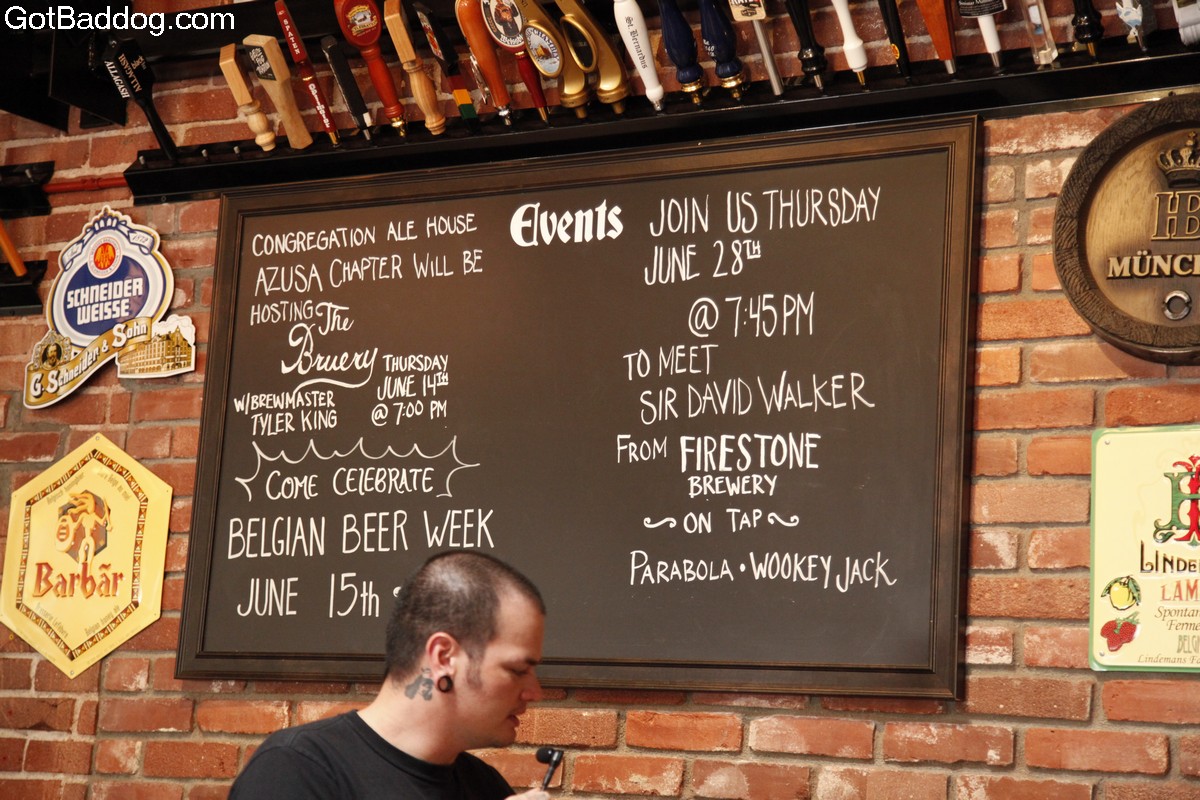 GotBaddog.com
ALLAGASH
St. Bernardus
Events
CONGREGATION ALE HOUSE
AZUSA CHAPTER WILL BE
HOSTING The
Bruery
THURSDAY
JUNE 14TH
@ 7:00 PM
W/BREWMASTER
TYLER KING
COME CELEBRATE
BELGIAN BEER WEEK
JUNE 15th
JOIN US THURSDAY
JUNE 28TH
@ 7:45PM
TO MEET
SIR DAVID WALKER
FROM FIRESTONE
BREWERY
~ ON TAP ~
PARABOLA • WOOKEY JACK
SCHNEIDER
WEISSE
G. Schneider & Sohn
Barbãr
HB
MÜNC
LINDE
LAM
Spontan
Ferme
BELG
Lindemans Fa